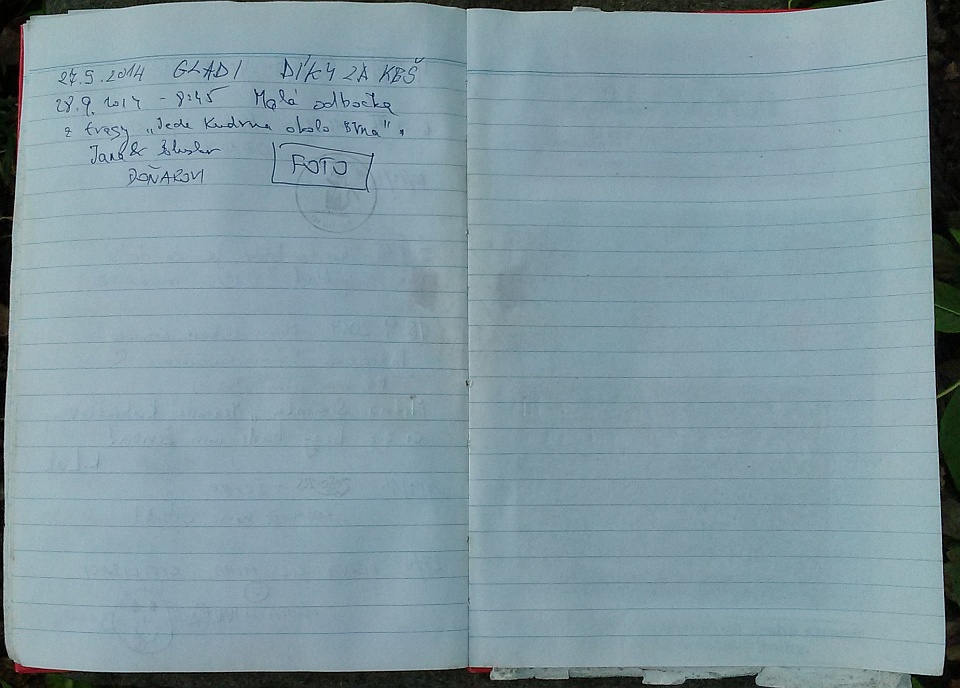 27.9.2014 GLADI DÍKY ZA KEŠ
28.9.2014 - 8:45 Malá odbočka
z trasy „Jede Kudrna okolo Brna".
Jana &
DOŇAROVI FOTO